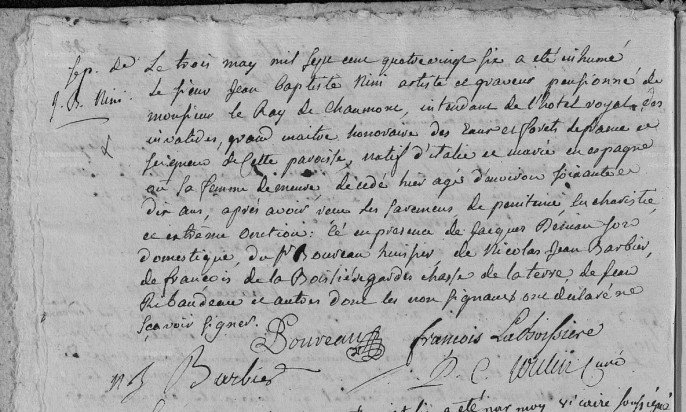 sep. de
J. B. Nini.
Le trois may mil sept cent quatre vingt six a été inhumé
Le sieur Jean Baptiste Nini artiste et graveur pensionné de
monsieur le Ray de Chaumont, intendant de l'hotel royal des
invalides, grand maitre honoraire des Eaux et forets de france et
seigneur de Cette paroisse, natif d'italie et marié en espagne
où sa femme demeure decedé hier agé d'environ soixante et
dix ans, après avoir reçu les sacremens de penitence eucharistie
et extrême onction: Et en presence de Jacques son
domestique, du Sr Bouveau huissier de Nicolas Jean Barbier,
de francois de la Boissiére gardes chasse de la terre de
Ribaudeau et autres dont les non signants ont declaré ne
sçavoir signer.
Bouveau francois LaBoissiere
nj Barbier curé
a été par moy vicaire soussigné